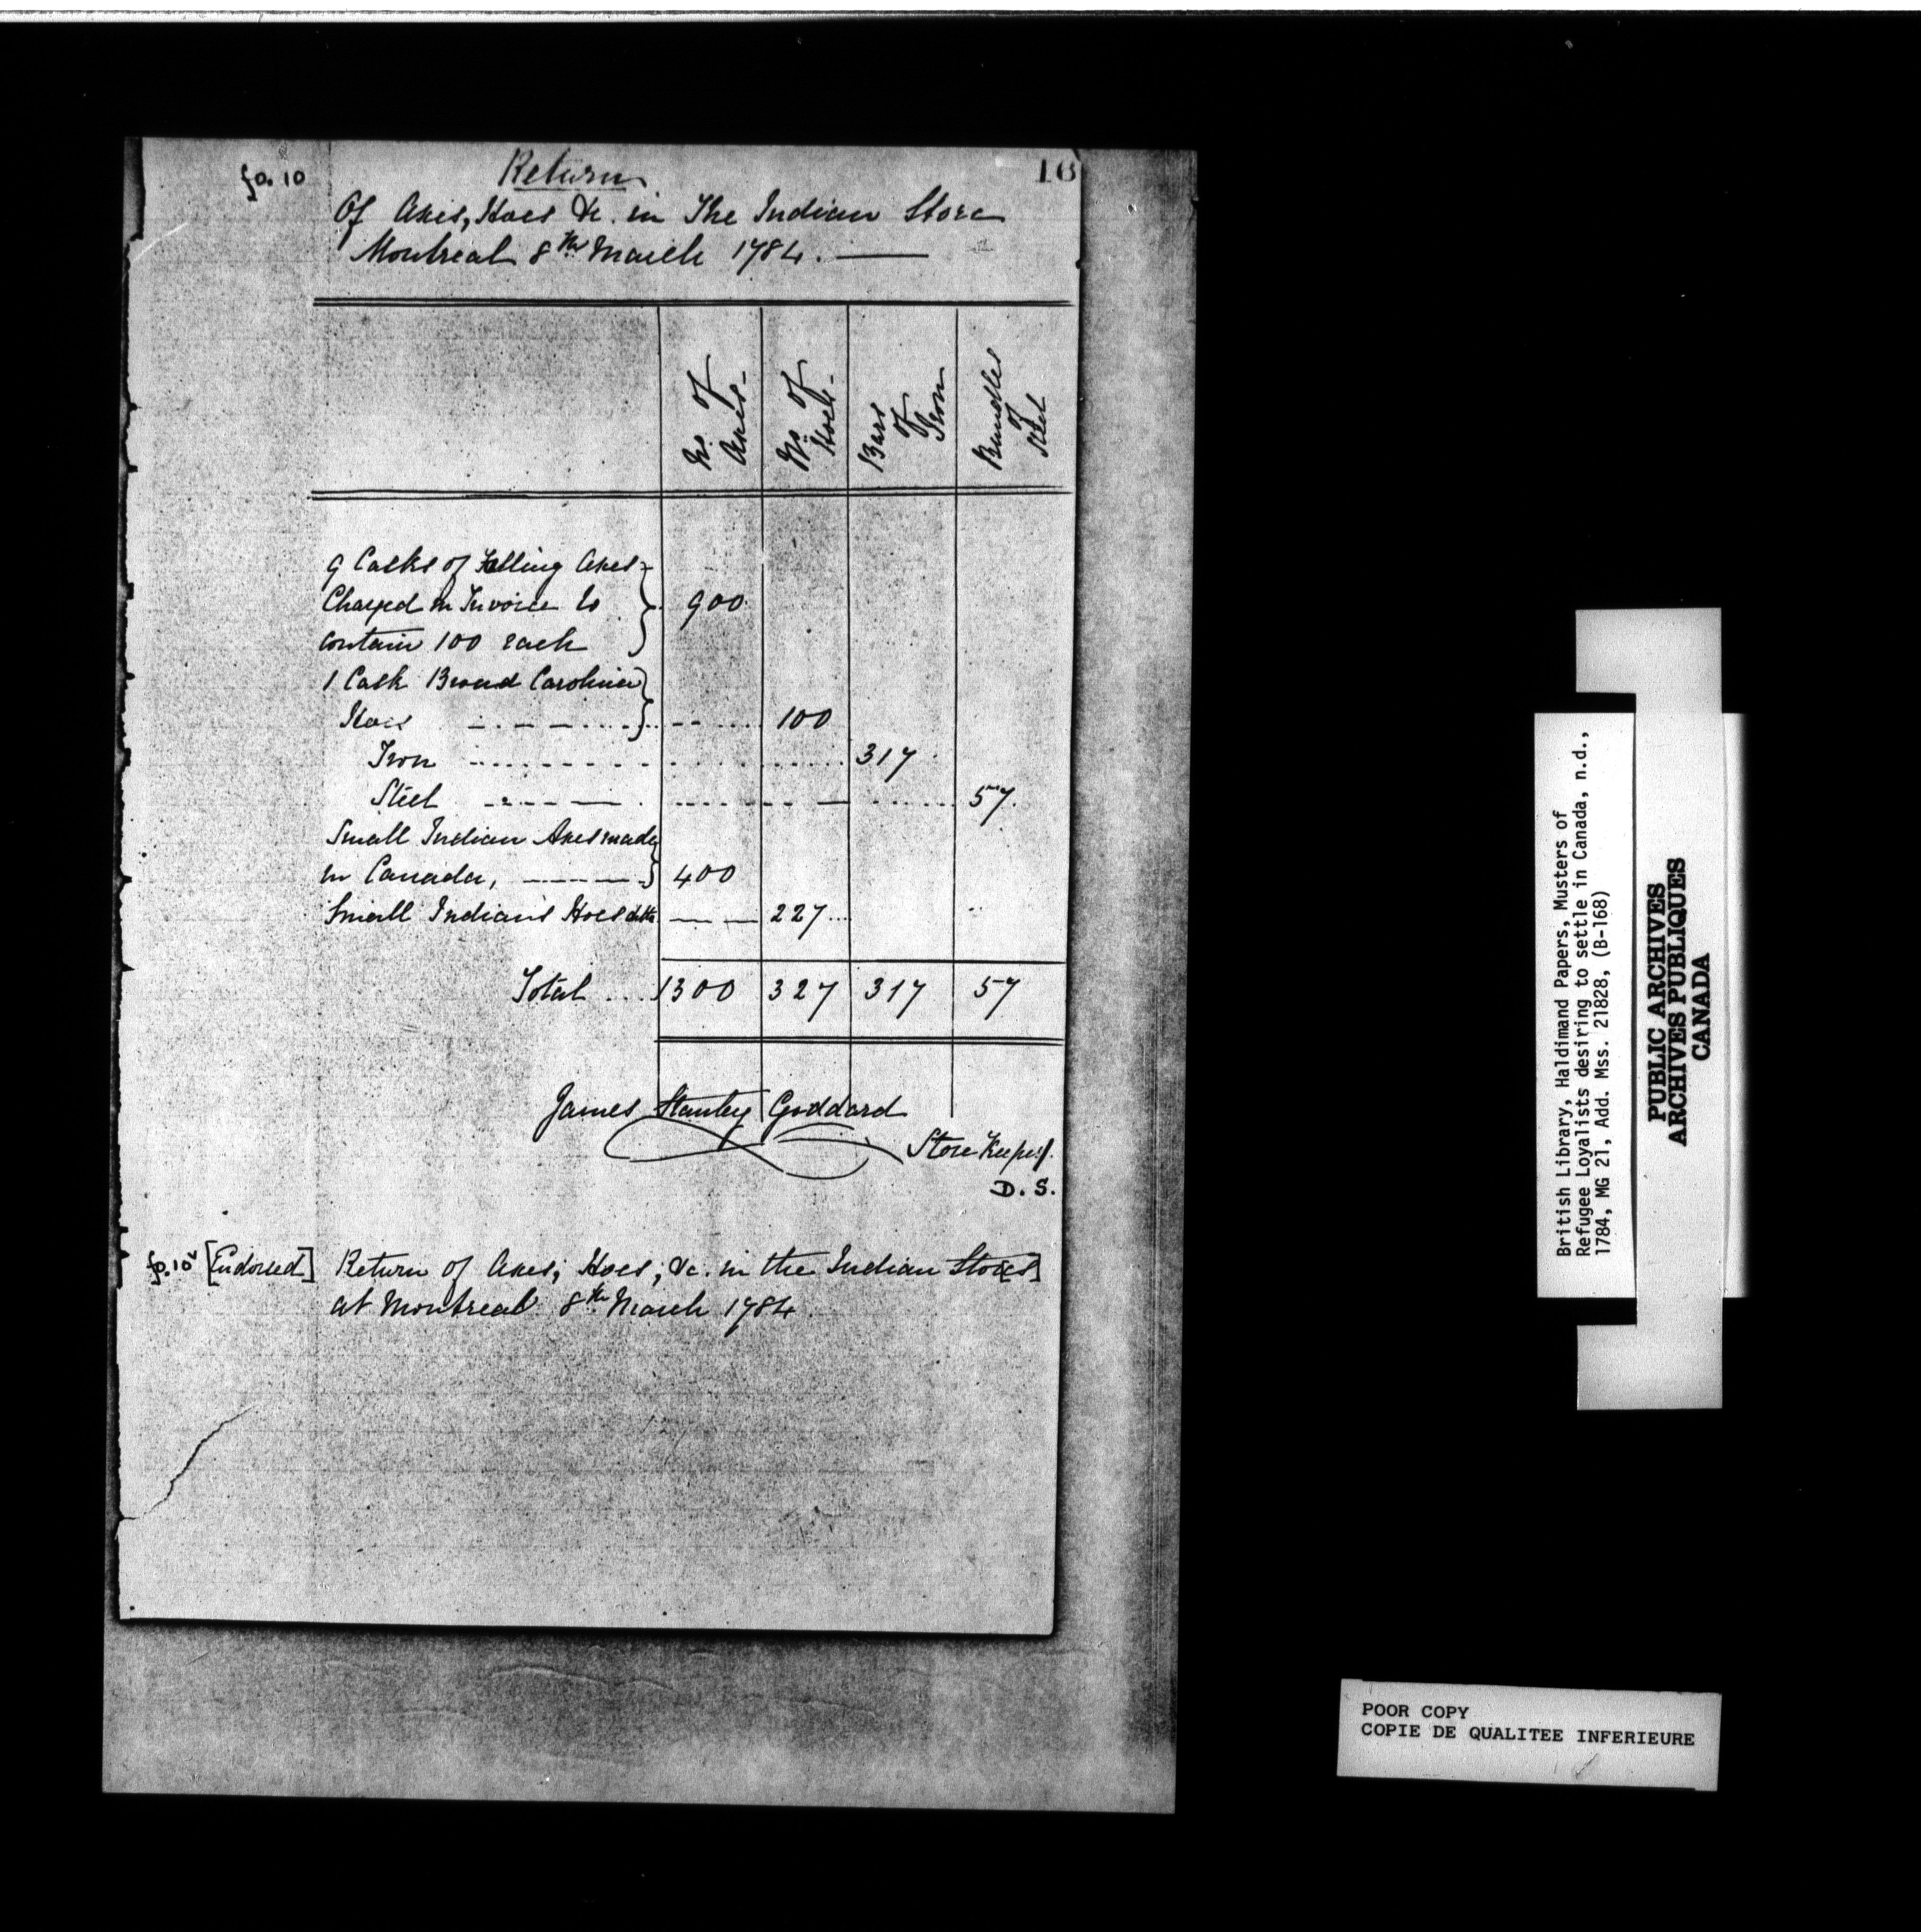 fo. 10
Return
16
Of Axes, Hoes &c. in The Indian Store
Montreal 8th March 1784.
No. of Axes
No. of Hoes
Bars of Iron
Bundles of Steel
9 Casks of Felling Axes
Charged in Invoice to 900
contain 100 each
1 Cask Broad Carolina
Hoes 100
Iron 317
Steel 57
Small Indian Axes made
in Canada, 400
Small Indians Hoes ditto 227
Total 1300 327 317 57
James Stanley Goddard
Store Keeper.
D. S.
fo. 10v [Endorsed] Return of Axes; Hoes; &c. in the Indian Sto[res]
at Montreal 8th March 1784
British Library, Haldimand Papers, Musters of
Refugee Loyalists desiring to settle in Canada, n.d.,
1784, MG 21, Add. Mss. 21828, (B-168)
PUBLIC ARCHIVES
ARCHIVES PUBLIQUES
CANADA
POOR COPY
COPIE DE QUALITEE INFERIEURE